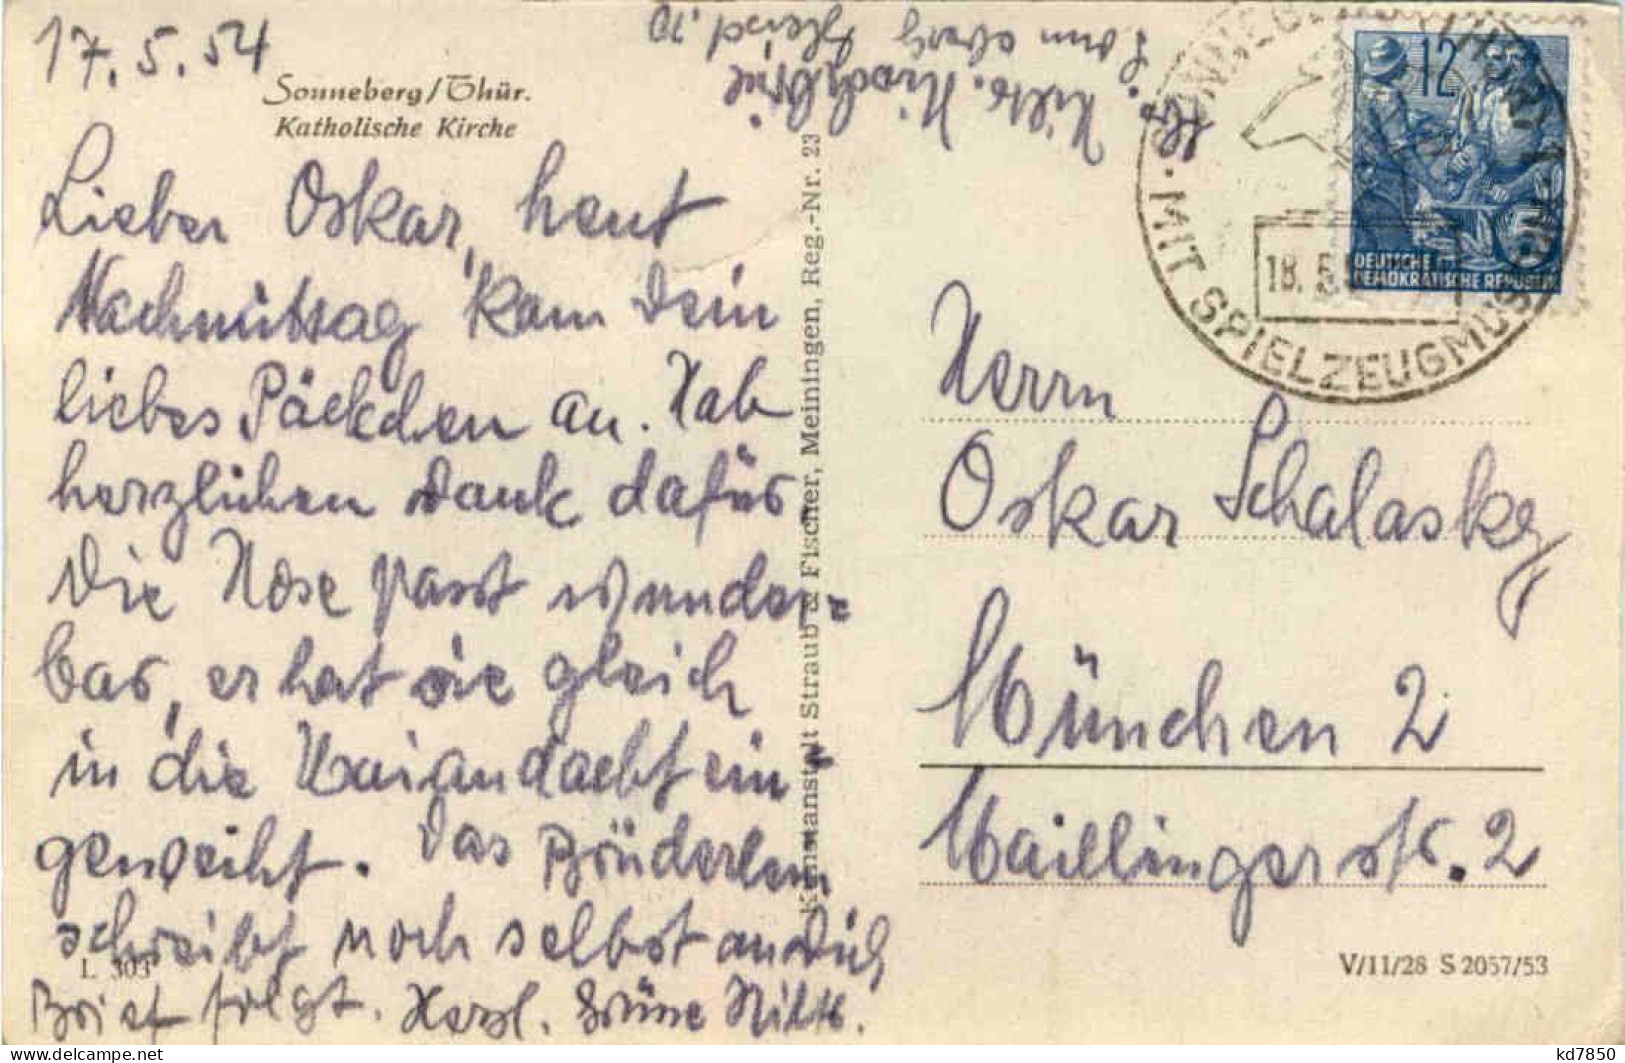 17.5.54
Sonneberg/Thür.
Katholische Kirche
Lieber Oskar, heut
Nachmittag kam Dein
liebes Päckchen an. Hab
herzlichen Dank dafür
Die Hose passt wunder-
bar, er hat sie gleich
in die Maiandacht ein-
geweiht. Das Brüderlein
schreibt noch selbst an Dich
Brief folgt. Herzl. Grüsse
L 303
Kunstanstalt Straub & Fischer, Meiningen, Reg.-Nr. 23
12
DEUTSCHE
DEMOKRATISCHE REPUBLIK
MIT SPIELZEUGMUSEUM
18.
Herrn
Oskar Schalasky
München 2
Maillingerstr. 2
V/11/28 S 2057/53
kd7850